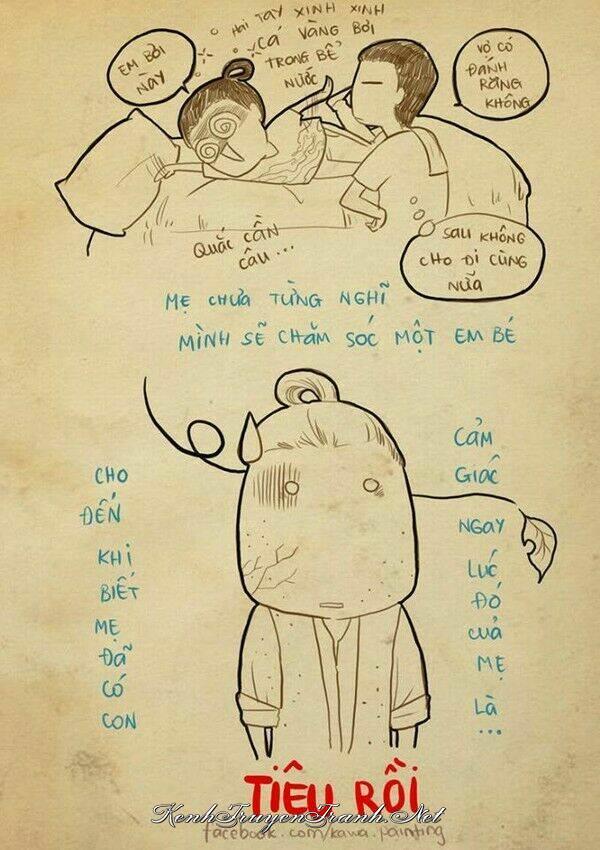 Hai TAY XINH XINH
CÁ VÀNG BƠI
TRONG BỂ
NƯỚC
EM BƠI
NÀY
VỢ CÓ
ĐÁNH
RĂNG
KHÔNG
QUẮC CẦN
CÂU...
SAU KHÔNG
CHO ĐI CÙNG
NỮA
MẸ CHƯA TỪNG NGHĨ
MÌNH SẼ CHĂM SÓC MỘT EM BÉ
CHO
ĐẾN
KHI
BIẾT
MẸ
ĐÃ
CÓ
CON
CẢM
GIÁC
NGAY
LÚC
ĐÓ
CUẢ
MẸ
LÀ
...
TIÊU RỒI
KenhTruyenTranh.Net
facebook.com/kawa.painting